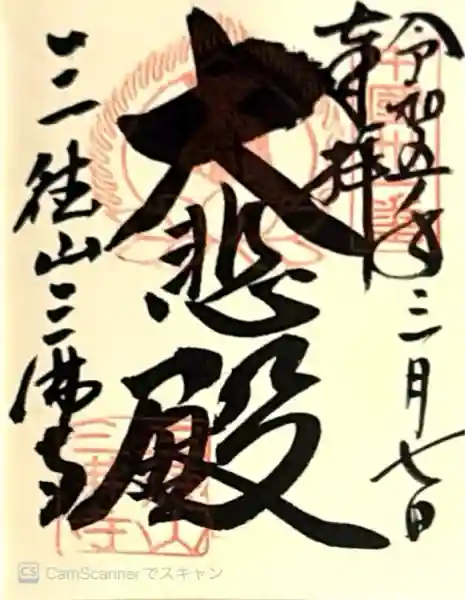 令和五年三月七日
奉拝
大悲殿
三徳山三佛寺
CS CamScannerでスキャン